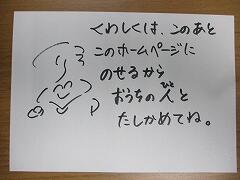 くわしくは、このあと
このホームページに
のせるから
おうちの人と
ひと
たしかめてね。